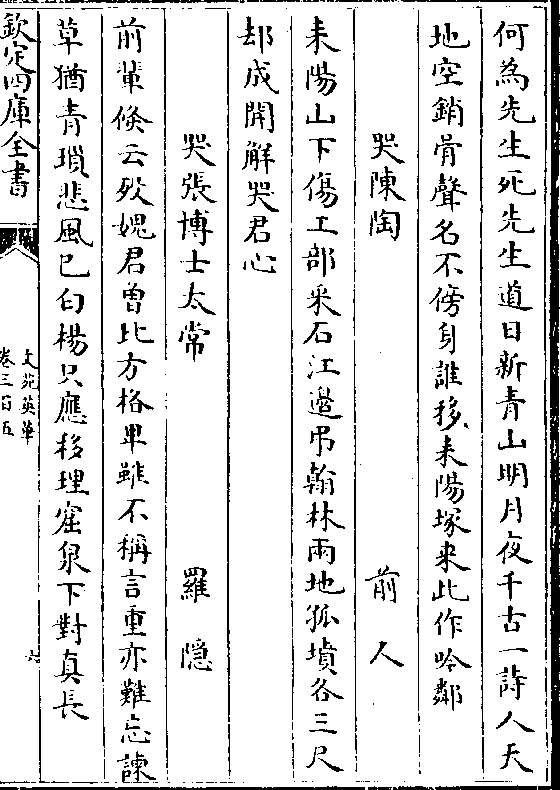 何為先生死先生道日新青山明月夜千古一詩人天
地空銷骨聲名不傍身誰移耒陽塚來此作吟鄰
哭陳陶　前人
耒陽山下傷工部采石江邊弔翰林兩地孤墳各三尺
却成開解哭君心
哭張博士太常　羅隱
前輩倐云歿媿君曽比方格卑雖不稱言重亦難忘諫
草猶青瑣悲風已白楊只應移理窟泉下對真長
欽定四庫全書
文苑英華
卷三百五
六